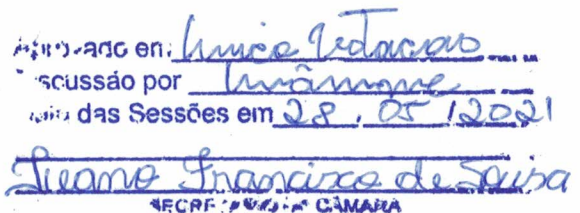 Aprovado em: Única Votação
Discussão por Unânime
Sala das Sessões em 28 / 05 / 2021
Francisco de Sousa
SECRETÁRIO DA CÂMARA